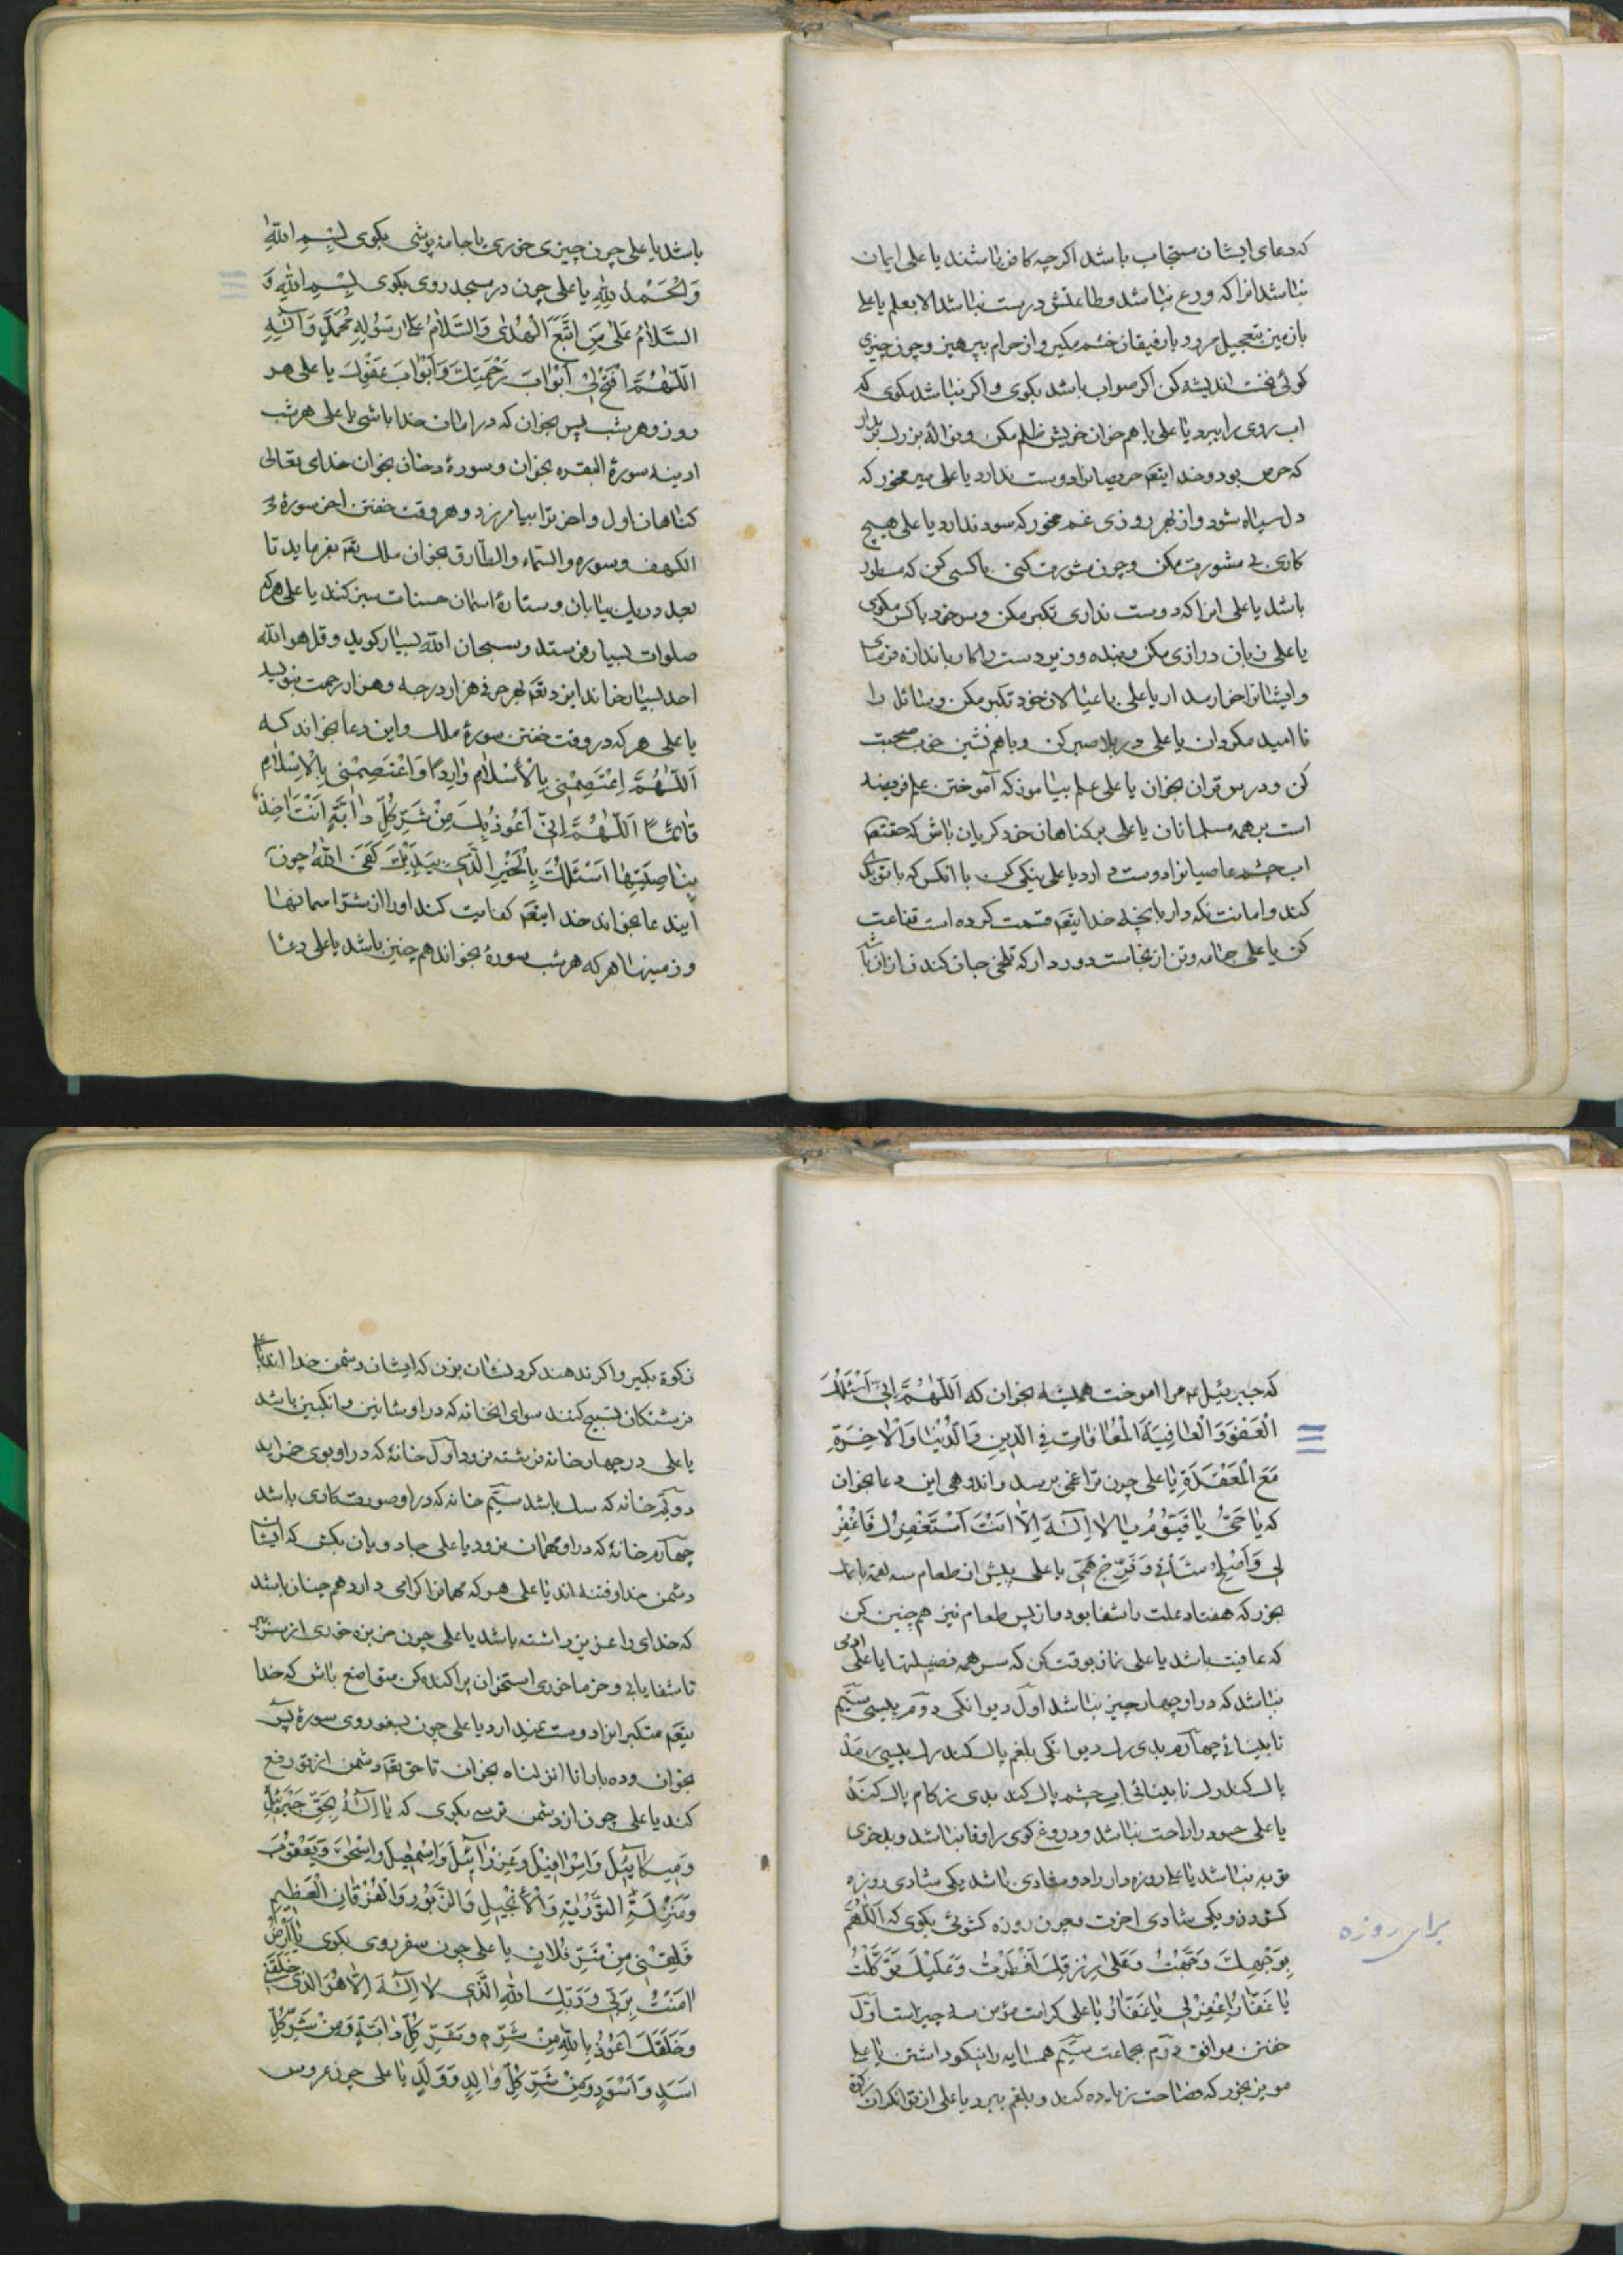 که دعای ایشان مستجاب باشد اکرچه کافر باشند یا علی ایمان
نباشد انرا که ورع نباشد وطاعتش درست نباشد الا بعلم یا علی
بازمین بتعجیل مرو و بارفیقان خشم مکیر واز حرام بپرهیز وچون چیزی
کوئی نخست اندیشه کن اکر صواب باشد بکوی واکر نباشد مکوی که
اب روی را ببرد یا علی با هم خوان خویش ظلم مکن ونواله بزرك برمدار
که حرص بود وخدایتعم حریصانرا دوست ندارد یا علی سیر مخور که
دل سیاه شود واز بهر روزی غم مخور که سود ندارد یا علی هیچ
کاری بی مشورت مکن وچون مشورت کنی با کسی کن که
باشد یا علی انرا که دوست نداری تکبر مکن وسر خود با کس مکوی
یا علی زبان درازی مکن وبنده وزیردست را کار باندازه فرمای
وایشانرا یا علی با عیالان خود تکبر مکن وسائل را
نا امید مکردان یا علی در بلا صبر کن وباهم نشین خوب صحبت
کن ودرس قران بخوان یا علی علم بیاموز که آموختن علم فریضه
است بر همه مسلمانان یا علی بر کناهان خود کریان باش که حقتعم
اب چشم عاصیانرا دوست دارد یا علی نیکی کن با انکس که با تو بدی
کند وامانت نکه دار بانچه خدایتعم قسمت کرده است قناعت
کن یا علی جامه وتن از نجاست دور دار که تلخی جان کندن ازان باشد
باشد یا علی چون چیزی خوری یا جامه پوشی بکوی بِسْمِ اللّٰهِ
وَالْحَمْدُ لِلّٰهِ یا علی چون در مسجد روی بکوی بِسْمِ اللّٰهِ وَ
السَّلامُ عَلیٰ مَنِ اتَّبَعَ الْهُدیٰ وَالسَّلامُ عَلیٰ رَسُولِهِ مُحَمَّدٍ وَآلِهِ
اَللّٰهُمَّ افْتَحْ لِی اَبْوابَ رَحْمَتِكَ وَاَبْوابَ عَفْوِكَ یا علی هر
روز وهر شب یس بخوان که در امان خدا باشی یا علی هر شب
ادینه سورهٔ البقره بخوان وسورهٔ دخان بخوان خدای تعالی
کناهان اول واخر ترا بیامرزد وهر وقت خفتن اخر سورهٔ
الکهف وسوره والسماء والطارق بخوان ملك تعم بفرماید تا
بعدد ریك بیابان وستارهٔ اسمان حسنات ثبت کنند یا علی هر که
صلوات بسیار فرستد وسبحان الله بسیار کوید وقل هو الله
احد بسیار خواند ایزد تعم بهر حرفی هزار درجه وهزار رحمت بنویسد
یا علی هر که در وقت خفتن سورهٔ ملك واین دعا بخواند که
اَللّٰهُمَّ اعْتَصِمْنِی بِالْاِسْلامِ وارِدًا وَاعْتَصِمْنِی بِالْاِسْلامِ
قائِمًا اَللّٰهُمَّ اِنِّی اَعُوذُ بِكَ مِنْ شَرِّ كُلِّ دابَّةٍ اَنْتَ اخِذٌ
بِناصِیَتِها اَسْئَلُكَ بِالْخَیْرِ الَّذِی بِیَدَیْكَ كَفیٰ اللّٰهُ چون
ایندعا بخواند خدایتعم کفایت کند اورا از شرّ اسمانها
وزمینها هر که هر شب سورهٔ بخواند هم چنین باشد یا علی دعا
که جبرئیل عم مرا اموخت همیشه بخوان که اَللّٰهُمَّ اِنِّی اَسْئَلُكَ
الْعَفْوَ وَالْعافِیَةَ الْمُعافاتِ فِی الدِّینِ وَالدُّنْیا وَالْاخِرَةِ
مَعَ الْمَعْقَدَةِ یا علی چون ترا غمی برسد واندوهی این دعا بخوان
که یا حَیُّ یا قَیُّومُ یا لا اِلٰهَ اِلاّ اَنْتَ اَسْتَغْفِرُكَ فَاغْفِرْ
لِی وَاَصْلِحْ شَأْنِی وَفَرِّجْ هَمِّی یا علی پیش از طعام سه لقمه با نمك
بخور که هفتاد علت را شفا بود واز پس طعام نیز هم چنین کن
که عافیت باشد یا علی نماز بوقت کن که سر همه فضیلتها یا علی ادمی
نباشد که در او چهار چیز نباشد اول دیوانکی دوم پیسی سیّم
نابینائی چهارم بدی رك دیوانکی بلغم پاك کند رك پیسی رمد
پاك کند رك نابینائی اب چشم پاك کند بدی زکام پاك کند
یا علی حسود را راحت نباشد ودروغ کوی را وفا نباشد وبدخوی
توبه نباشد یا علی روزه دار را دو شادی باشد یکی شادی روزه
کشودن ویکی شادی اخرت وچون روزه کشوئی بکوی که اَللّٰهُمَّ
بِوَجْهِكَ وَجَّهْتُ وَعَلیٰ رِزْقِكَ اَفْطَرْتُ وَعَلَیْكَ تَوَکَّلْتُ
یا غَفّارُ اغْفِرْ لِی یا غَفّارُ یا علی کرامت مؤمن سه چیز است اوّل
خفتن موافق دوم بجماعت سیّم همسایه را نیکو داشتن یا علی
مویز بخور که فصاحت زیاده کند وبلغم ببرد یا علی از توانکران زکوة
برای روزه
زکوة بکیر واکر ندهند کردنشان بزن که ایشان دشمن خدا اند یا علی
فرشتکان تسبیح کنند سوای انخانه که در او باشد
یا علی در چهار خانه فرشته نرود اوّل خانهٔ که در او بوی خمر اید
دویم خانه که سك باشد سیّم خانه که در او صورتکاری باشد
چهارم خانهٔ که در او مهمان نرود یا علی جادویان بکش که ایشان
دشمن خدا وفتنه اند یا علی هر که مهمانرا کرامی دارد هم چنان باشد
که خدای را عزیز داشته باشد یا علی چون خربزه خوری از پیش بر
تا شفا یابی وخرما خوری استخوان پراکنده کن متواضع باش که خدا
یتعم متکبرانرا دوست نمیدارد یا علی چون بسفر روی سورهٔ یس
بخوان وده بار انا انزلناه بخوان تا حق تعم دشمن از تو رفع
کند یا علی چون از دشمن ترسی بکوی که یا اِلٰهُ بِحَقِّ جَبْرَئِیلَ
وَمِیكائِیلَ وَاِسْرافِیلَ وَعِزْرائِیلَ وَاِسْمٰعِیلَ وَاِسْحٰقَ وَیَعْقُوبَ
وَمَنْزِلَةِ التَّوْرٰیةِ وَالْاِنْجِیلِ وَالزَّبُورِ وَالْفُرْقانِ الْعَظِیمِ
فَلِقِنِی مِنْ شَرِّ فُلانٍ یا علی چون سفر روی بکوی یا اَرْضُ
امَنْتُ بِرَبِّی وَرَبِّكِ اللّٰهِ الَّذِی لا اِلٰهَ اِلاّ هُوَ الَّذِی خَلَقَنِی
وَخَلَقَكَ اَعُوذُ بِاللّٰهِ مِنْ شَرِّهِ وَشَرِّ كُلِّ دابَّةٍ وَمِنْ شَرِّ كُلِّ
اَسَدٍ وَاَسْوَدٍ وَمِنْ شَرِّ كُلِّ والِدٍ وَوَلَدٍ یا علی چون عروس